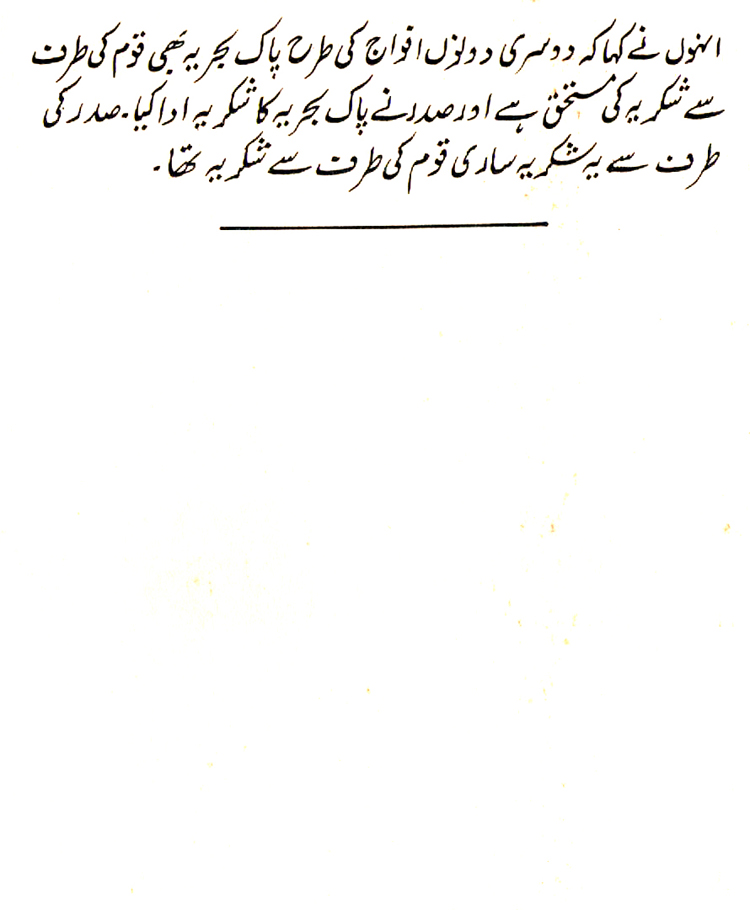 انہوں نے کہا کہ دوسری دونوں افواج کی طرح پاک بحریہ بھی قوم کی طرف
سے شکریہ کی مستحق ہے اور صدر نے پاک بحریہ کا شکریہ ادا کیا۔ صدر کی
طرف سے یہ شکریہ ساری قوم کی طرف سے شکریہ تھا۔